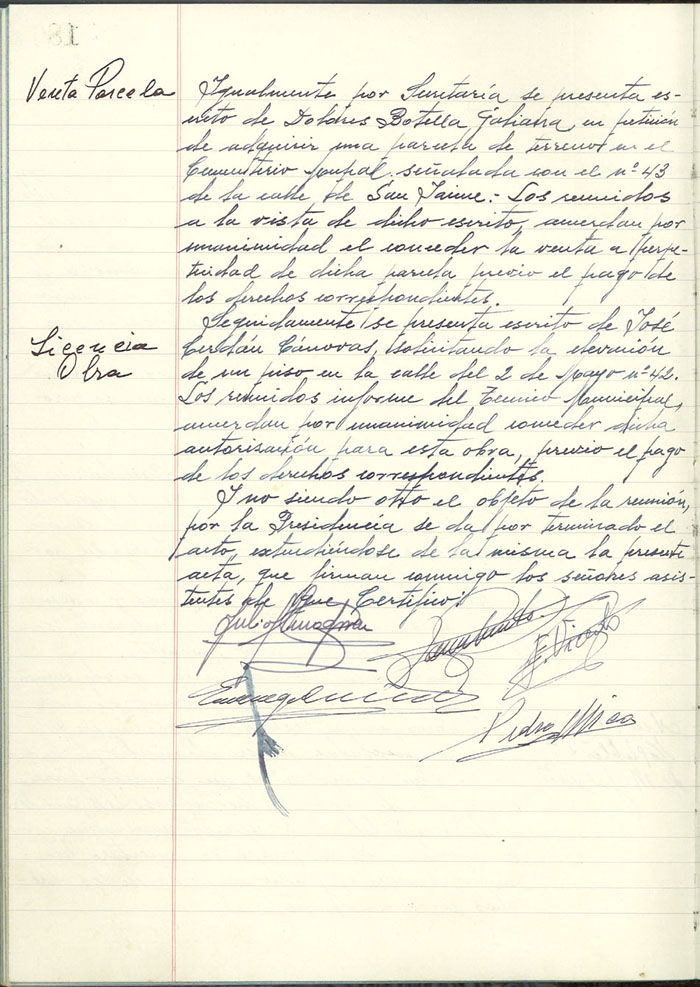 Venta Parcela
Igualmente por Secretaría se presenta es-
crito de Dolores Botella Galiana en petición
de adquirir una parcela de terreno en el
Cementerio Mupal. señalada con el nº 43
de la calle de San Jaime.- Los reunidos
a la vista de dicho escrito, acuerdan por
unanimidad el conceder la venta a perpe-
tuidad de dicha parcela previo el pago de
los derechos correspondientes.
Licencia
Obra
Seguidamente se presenta escrito de José
Cerdán Cánovas, solicitando la elevación
de un piso en la calle del 2 de Mayo nº 42.
Los reunidos informe del Tecnico Municipal,
acuerdan por unanimidad conceder dicha
autorización para esta obra, previo el pago
de los derechos correspondientes.
Y no siendo otro el objeto de la reunión,
por la Presidencia se da por terminado el
acto, extendiéndose de la misma la presente
acta, que firman conmigo los señores asis-
tentes de que Certifico:
Julio
F. Vicedo
Pedro Mico